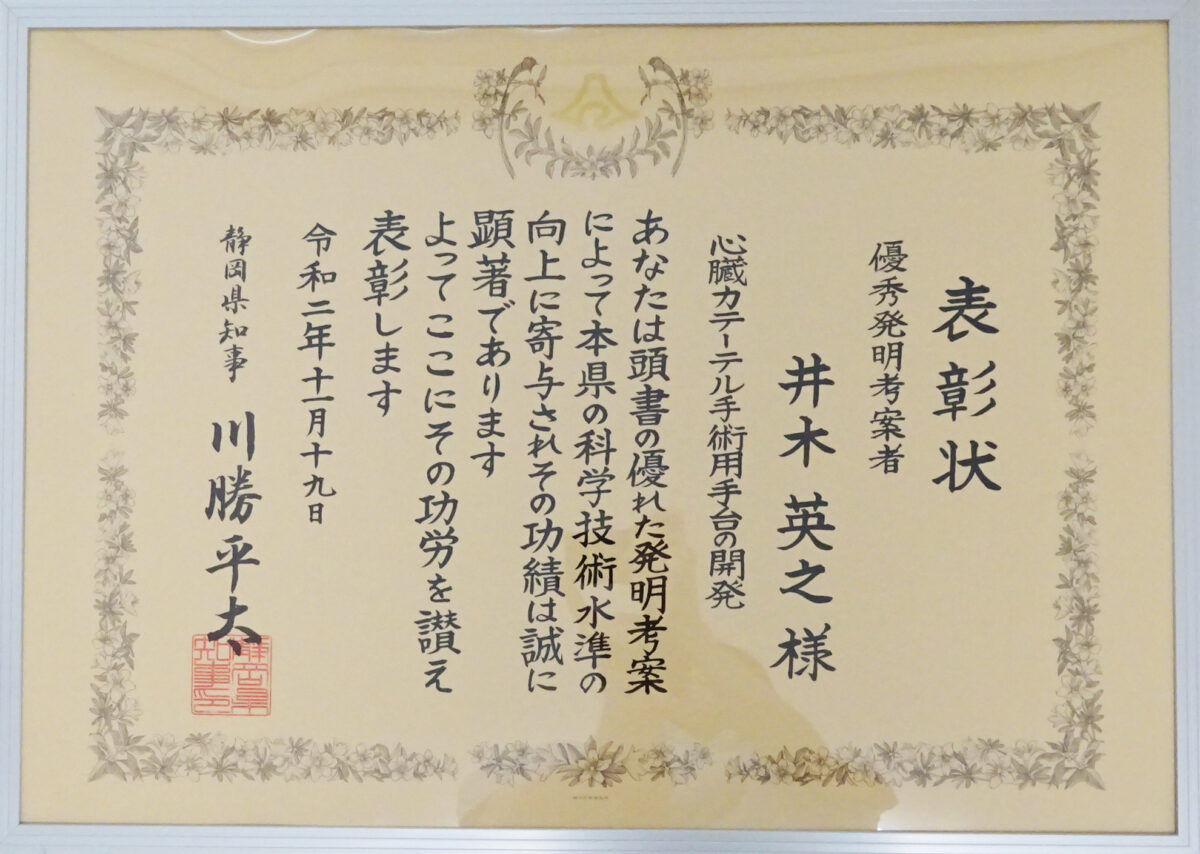 表彰状
優秀発明考案者
井木英之様
心臓カテーテル手術用手台の開発
あなたは頭書の優れた発明考案
によって本県の科学技術水準の
向上に寄与されその功績は誠に
顕著であります
よってここにその功労を讃え
表彰します
令和二年十一月十九日
静岡県知事 川勝平太
静岡県知事印